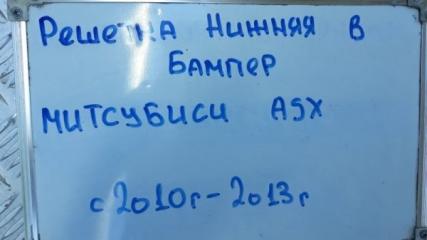 Решетка Нижняя в
Бампер
митсубиси АSX
с 2010г-2013г